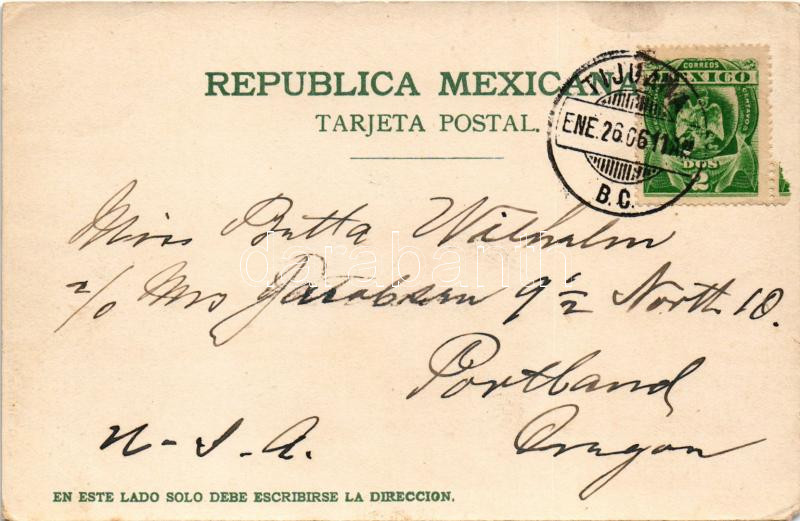 REPUBLICA MEXICANA
TARJETA POSTAL.
CORREOS
MEXICO
CENTAVOS
DOS
2
TIJUANA
ENE. 26.06 11AM
B.C.
Miss Betta Wilhelm
c/o Mrs Jacobsen 9 1/2 North 10.
Portland
Oregon
U-S-A.
darabanth
EN ESTE LADO SOLO DEBE ESCRIBIRSE LA DIRECCION.